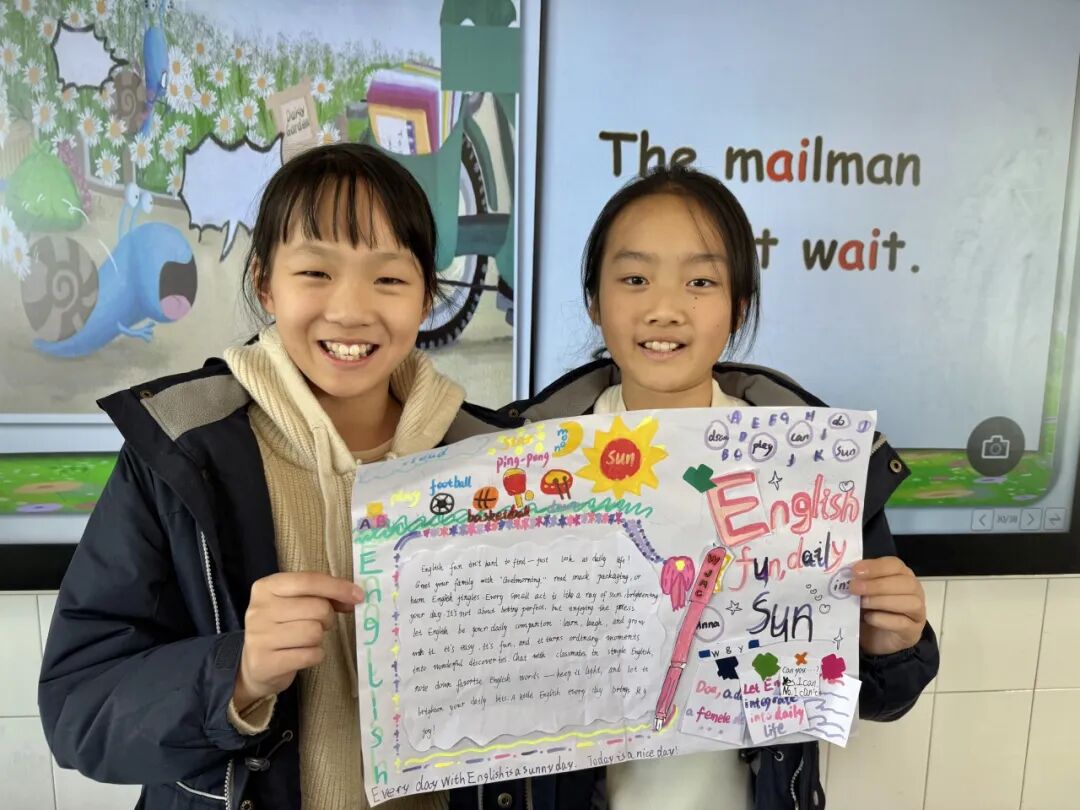 Daisy
Garden
The mailman
t wait.
Star
moon
Sun
ping-pong
football
play
basketball
A B
English
English fun isn't hard to find — just look at daily life!
Greet your family with "Goodmorning," read snack packaging, or
hum English jingles. Every small act is like a ray of sun, brightening
your day. It's not about being perfect, but enjoying the process.
let English be your daily companion: learn, laugh, and grow
with it. It's easy, it's fun, and it turns ordinary moments
into wonderful discoveries. Chat with classmates in simple English,
note down favorite English words — keep it light, and let it
brighten your daily life. A little English every day brings big
joy!
play
can
ab
sun
English
fun, daily
Sun
in
Anna
W B Y
a female
Let En
integrate
into daily
life
Can you
I can
No, I can't
Every day with English is a sunny day. Today is a nice day!